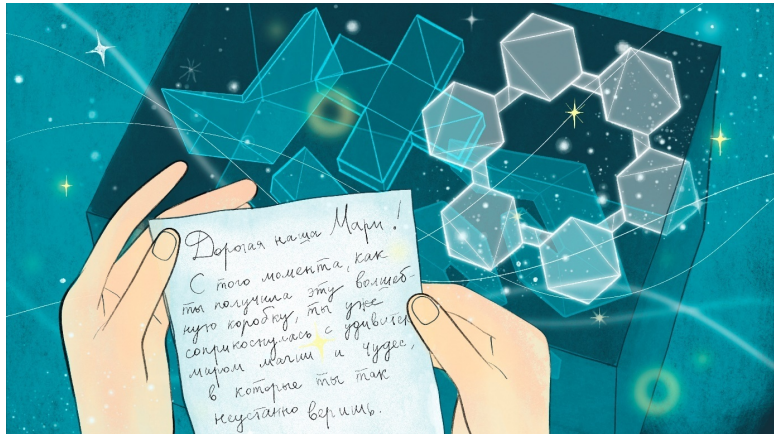 Дорогая наша Мари!
С того момента, как
ты получила эту волшеб-
ную коробку, ты уже
соприкоснулась с удивител
миром магии и чудес,
в которые ты так
неустанно веришь.